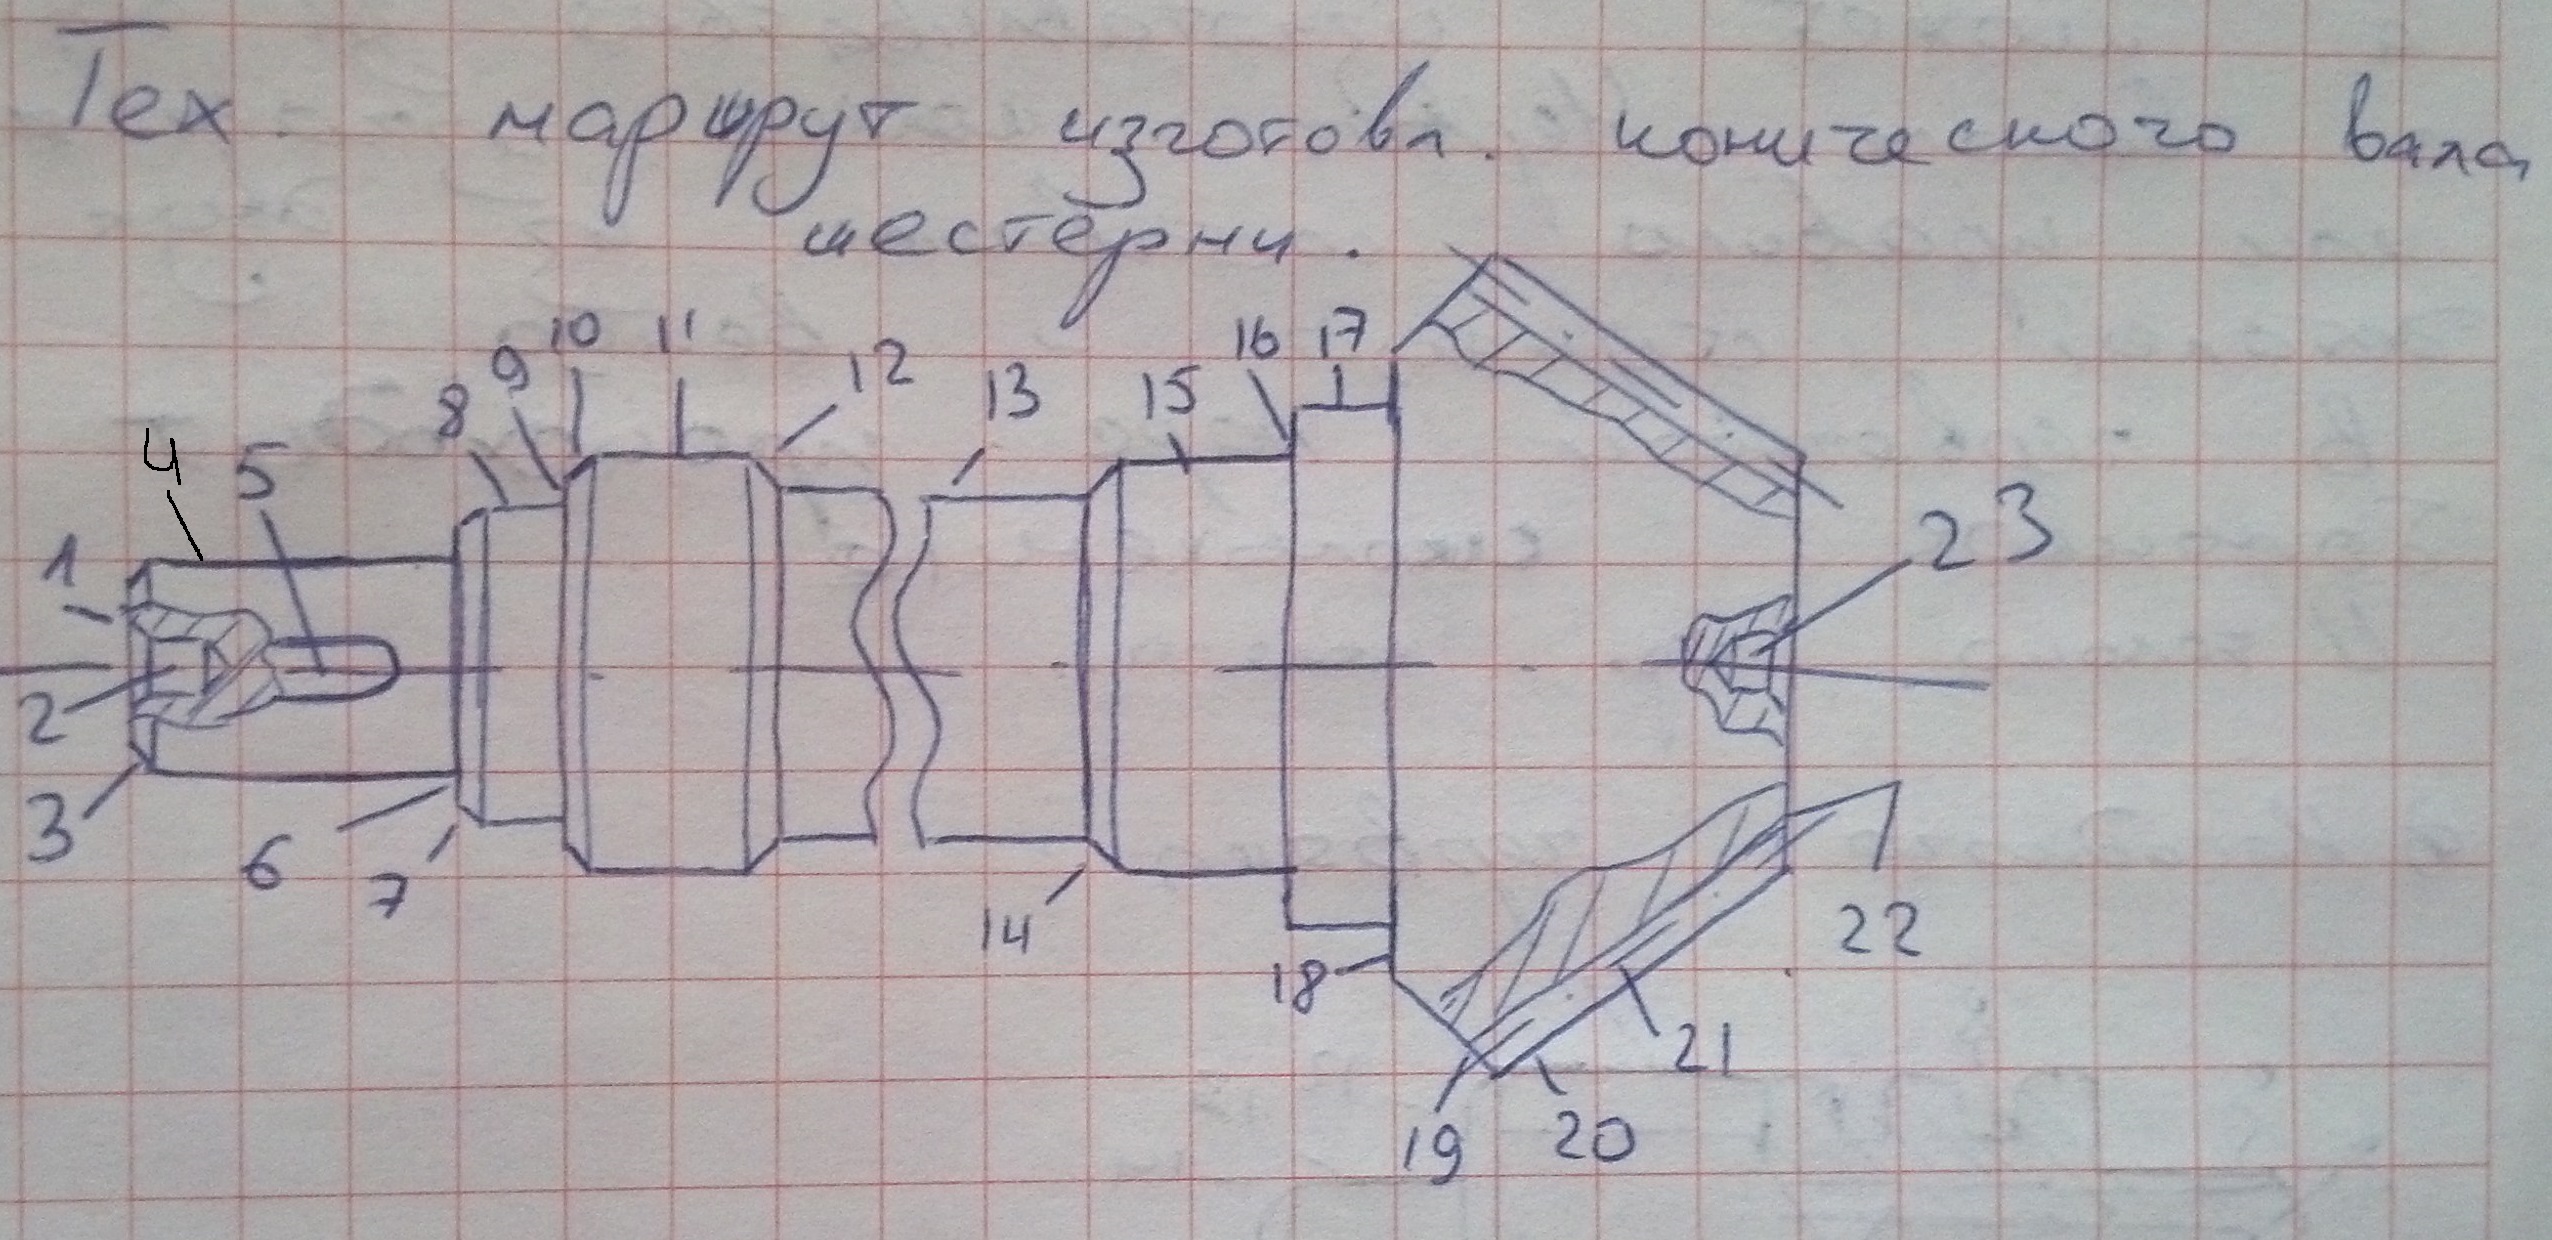 Тех. маршрут изготовл. конического вала
шестерни.
10 11
16 17
9 12
8 13 15
4 5
1 23
2
3 6 7
14 18 22
21
19 20